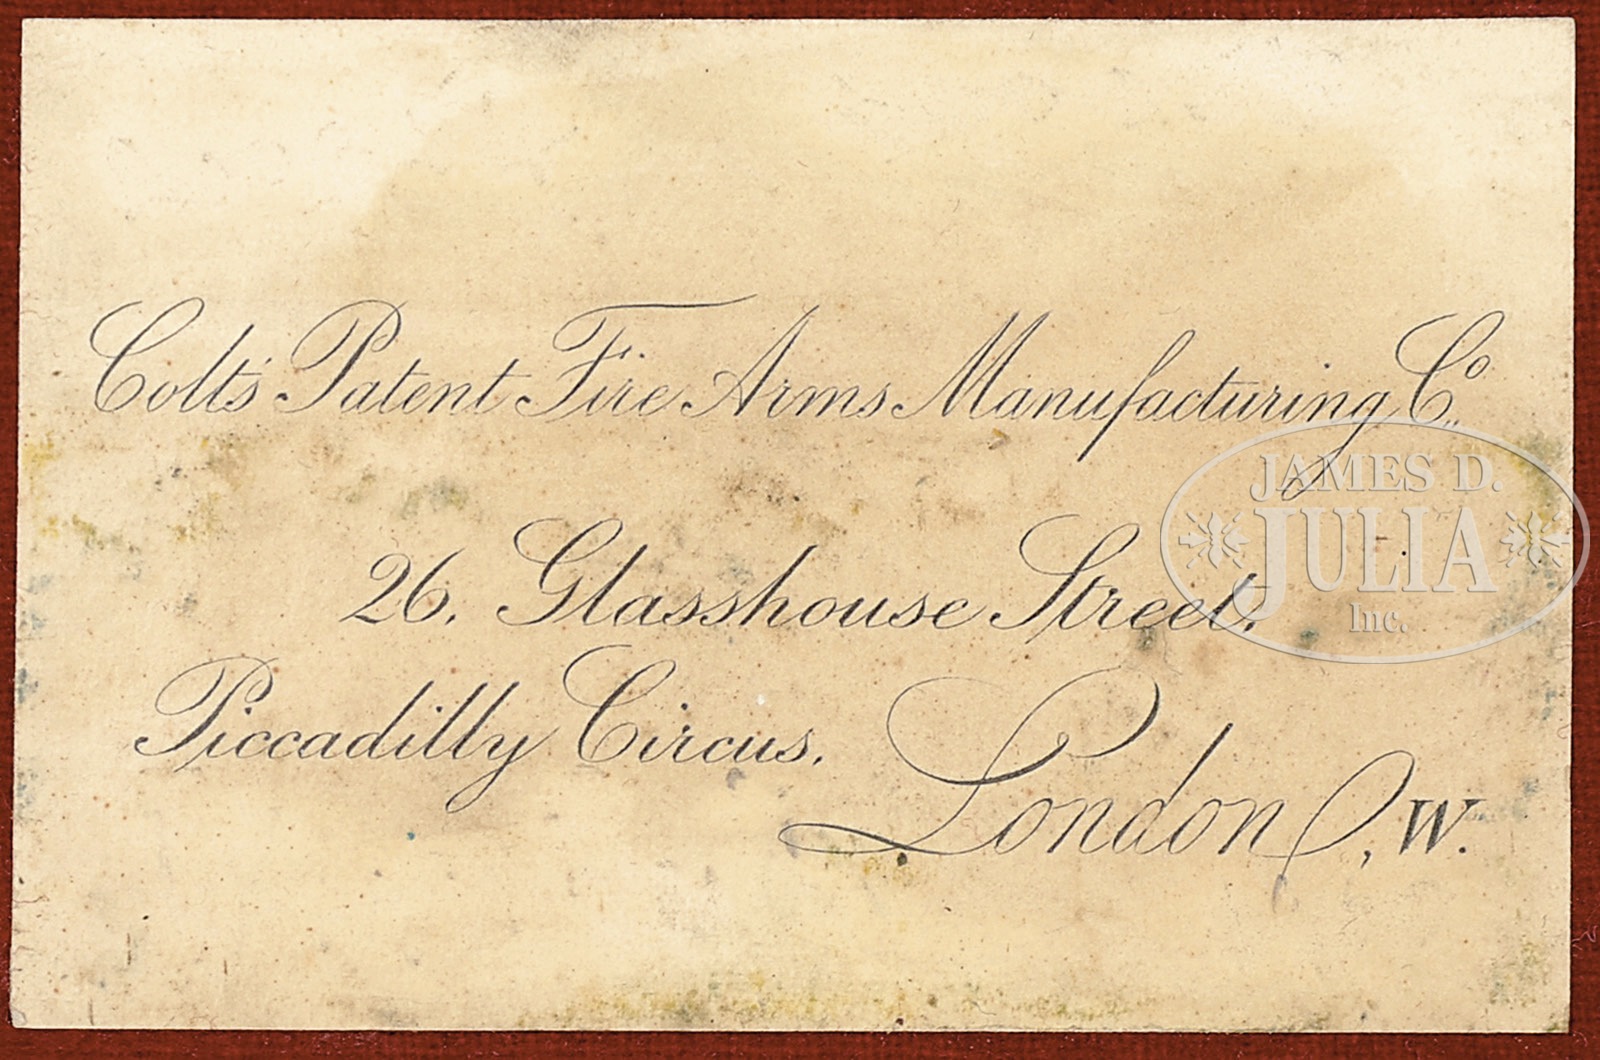 Colt's Patent Fire Arms Manufacturing Co.,
26, Glasshouse Street,
Piccadilly Circus,
London, W.
JAMES D.
JULIA
Inc.